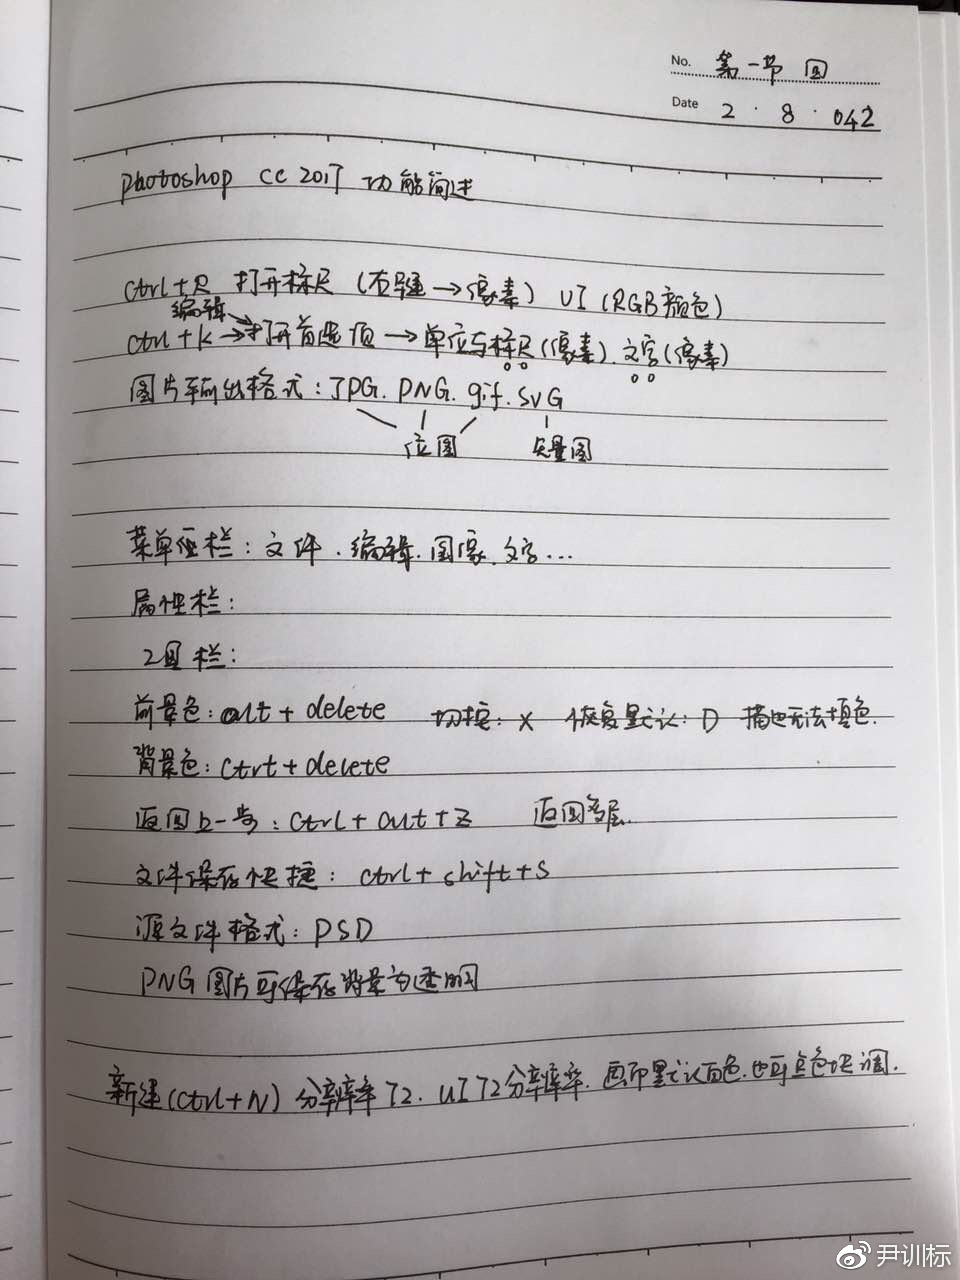 No. 第一节
Date 2 · 8 · 042
photoshop CC 2017 功能简述
ctrl+R 打开标尺 (右键→像素) UI (RGB颜色)
编辑
ctrl+K→打开首选项→单位与标尺(像素).文字(像素)
图片输出格式:JPG.PNG.gif.SVG
位图 矢量图
菜单栏:文件.编辑.图像.文字...
属性栏:
工具栏:
前景色:alt+delete 切换:X 恢复默认:D 描边无法填色.
背景色:ctrl+delete
返回上一步:ctrl+alt+Z 返回多层.
文件保存快捷:ctrl+shift+S
源文件格式:PSD
PNG图片可保存背景为透明
新建(ctrl+N) 分辨率72.UI72分辨率.画布默认白色.也可点色块调.
尹训标